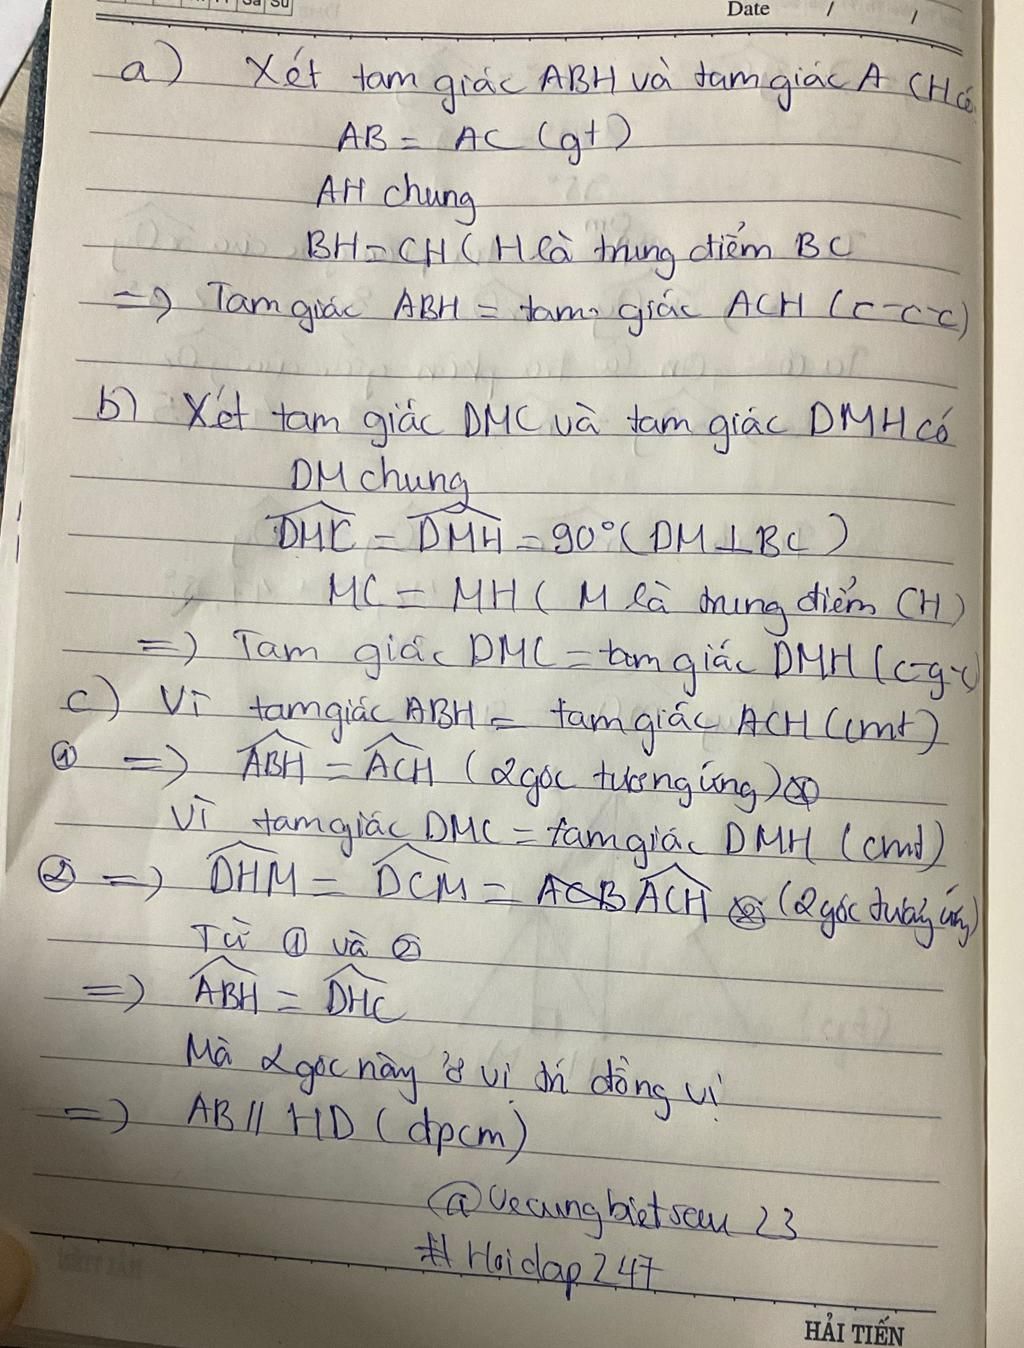 Sa Su
Date / /
a) Xét tam giác ABH và tam giác ACH có
AB = AC (gt)
AH chung
BH = CH (H là trung điểm BC
=> Tam giác ABH = tam giác ACH (c-c-c)
b) Xét tam giác DMC và tam giác DMH có
DM chung
DMC = DMH = 90° (DM ⊥ BC)
MC = MH (M là trung điểm CH)
=> Tam giác DMC = tam giác DMH (c-g-c)
c) Vì tam giác ABH = tam giác ACH (cmt)
① => ABH = ACH (2 góc tương ứng)
Vì tam giác DMC = tam giác DMH (cmt)
② => DHM = DCM = ACH (2 góc tương ứng)
Từ ① và ②
=> ABH = DHC
Mà 2 góc này ở vị trí đồng vị
=> AB // HD (đpcm)
@vecungbietsau23
#Hoidap247
HẢI TIẾN